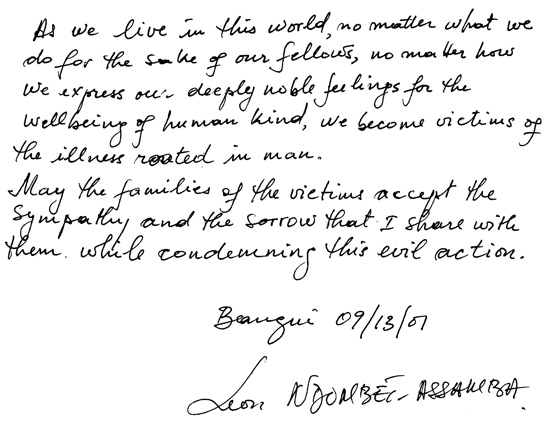 As we live in this world, no matter what we
do for the sake of our fellows, no matter how
we express our deeply noble feelings for the
wellbeing of human kind, we become victims of
the illness rooted in man.
May the families of the victims accept the
sympathy and the sorrow that I share with
them. while condemning this evil action.
09/13/01
Leon ASSAMBA